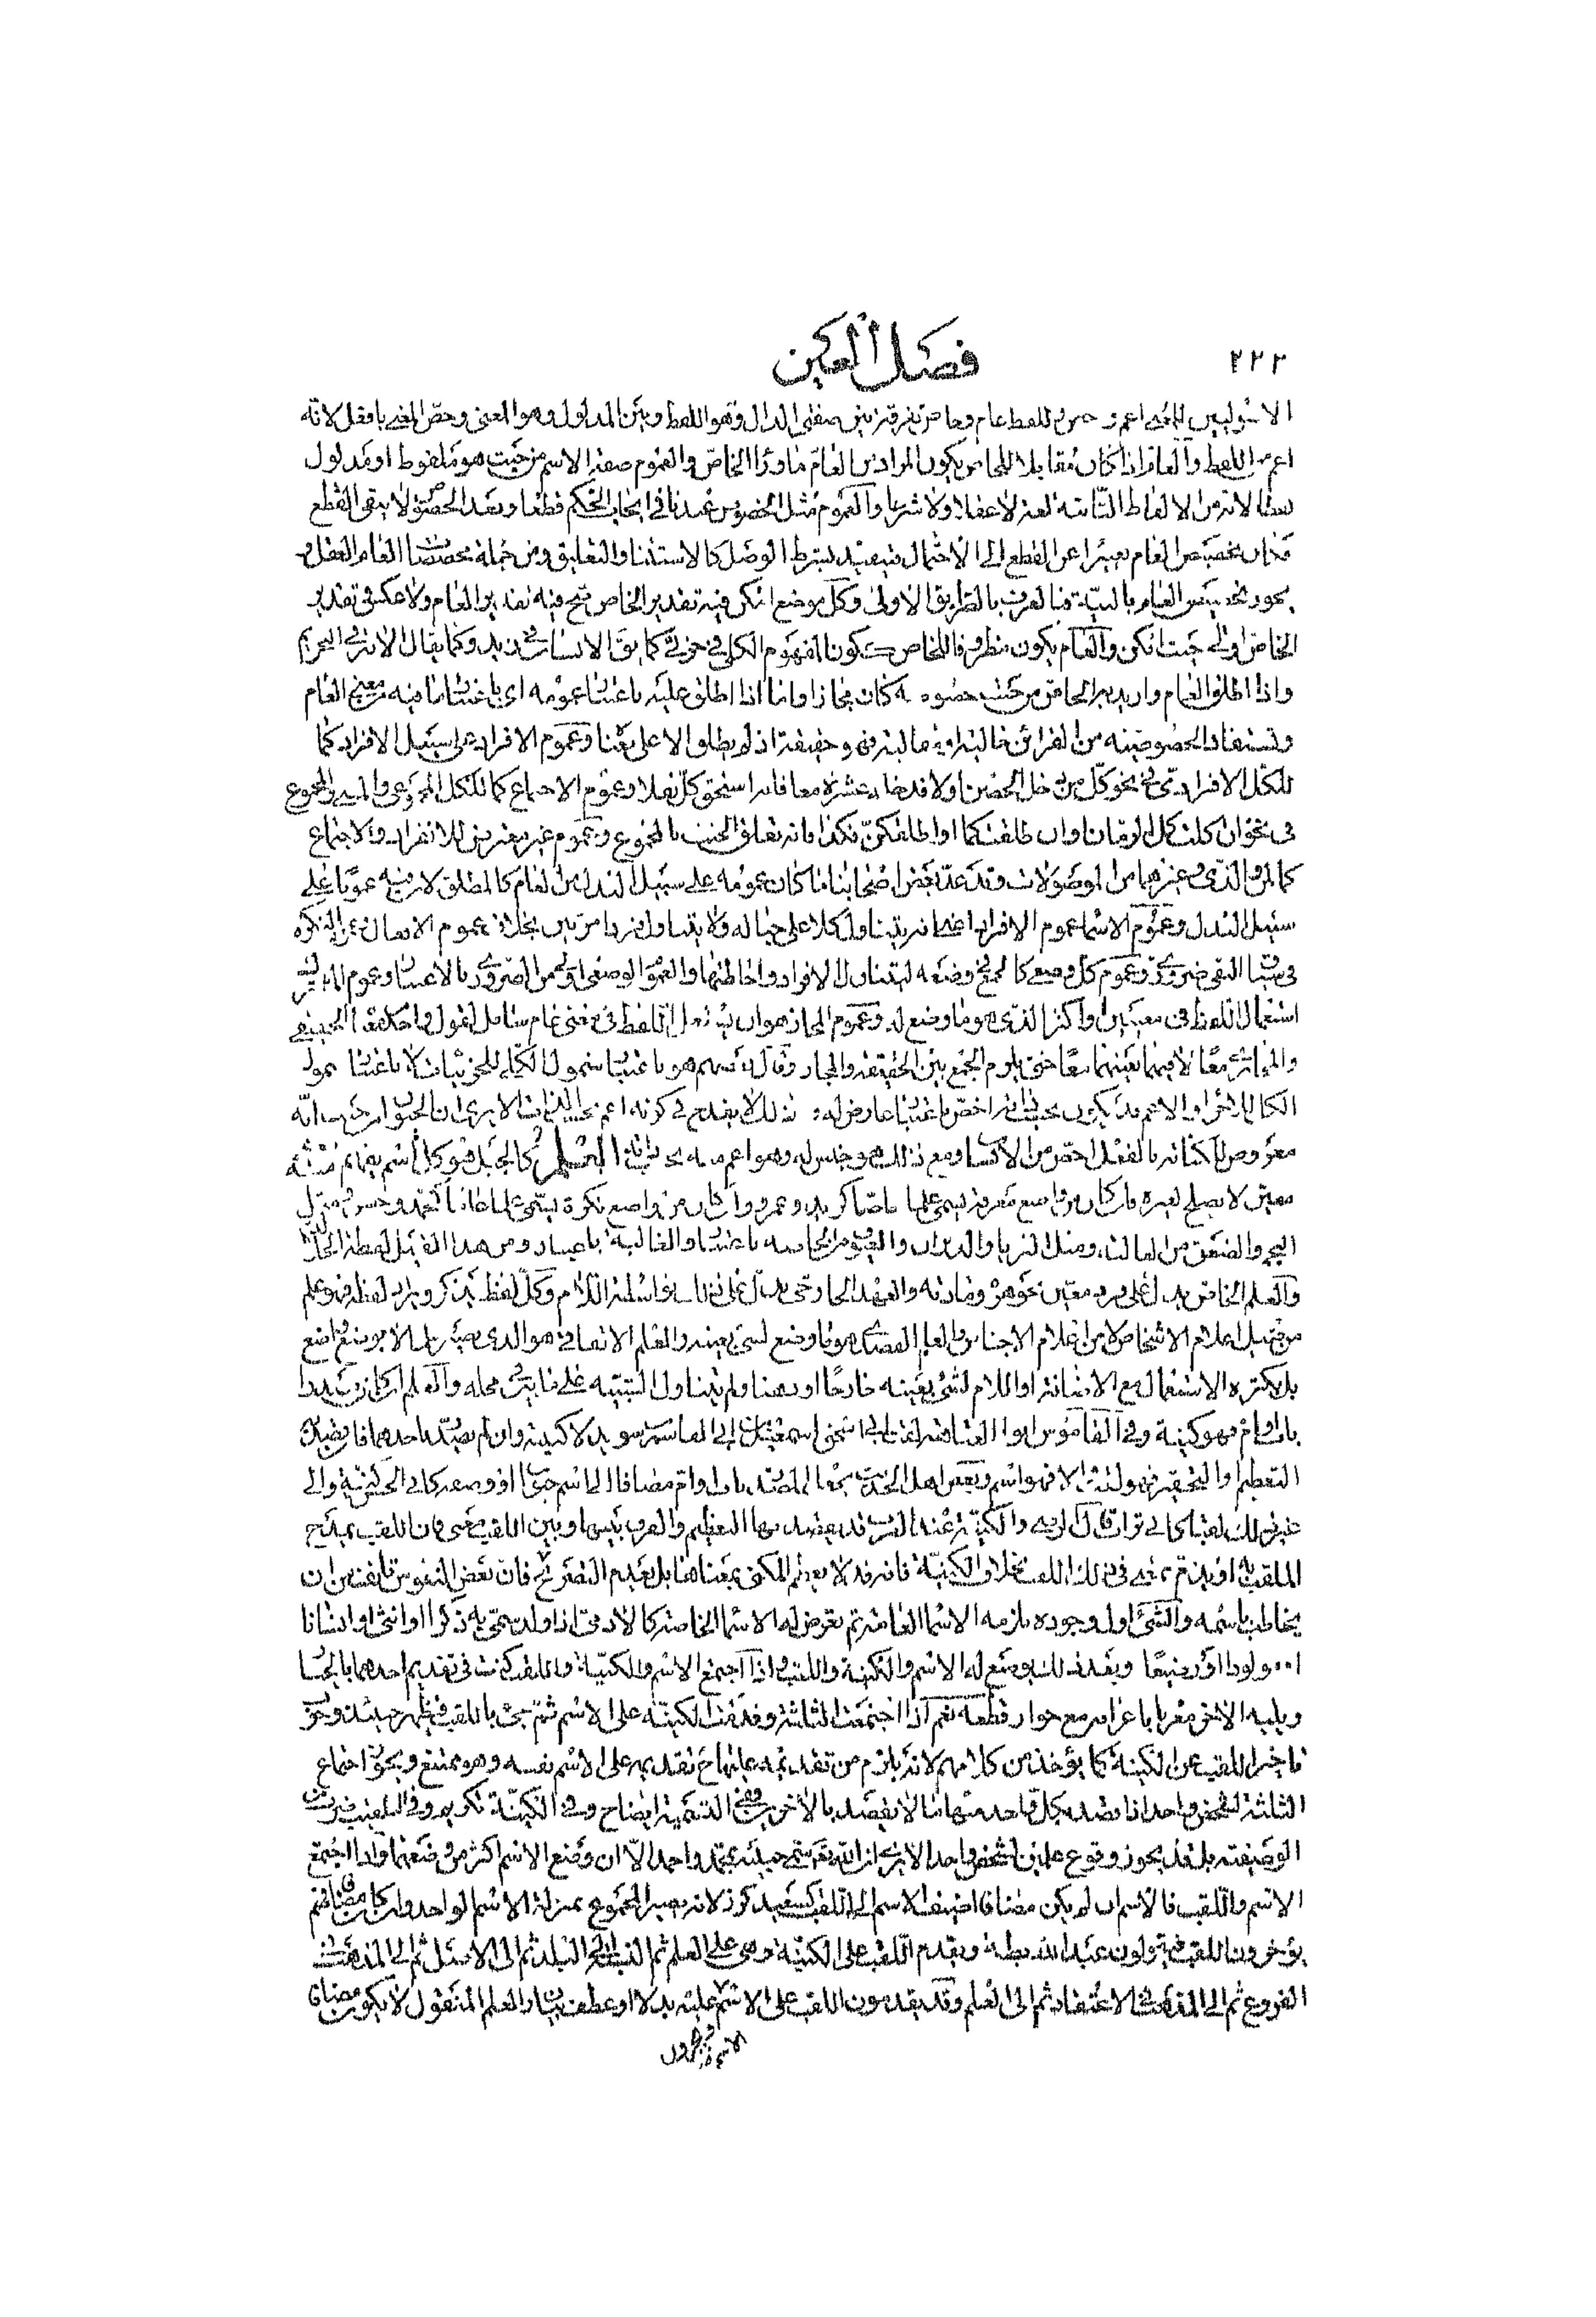 ٢٢٢ فصل العين
الاصوليين للمعنى اعم و للفظ عام وخاص تفرقة بين صفتى الدال وهو اللفظ وبين المدلول وهو المعنى وخص المعنى بافعل لانه
اعم من اللفظ والعام اذا كان مقابلا للخاص يكون المراد من العام ما وراء الخاص والعموم صفة الاسم من حيث هو ملفوظ او مدلول
لفظا لانه من الالفاظ الثابتة لغة لا عقلا ولا شرعا والعموم مثل الخصوص عندنا فى ايجاب الحكم قطعا وبعد الخصوص لا يبقى القطع
فكان تخصيص العام تغييرا عن القطع الى الاحتمال فيتقيد بشرط الوصل كالاستثناء والتعليق ومن جملة مخصصات العام العقل
يجوز تخصيص العام بالنية فبالعرف بالطريق الاولى وكل موضع امكن فيه تقدير الخاص صح فيه تقدير العام ولا عكس فتقدير
الخاص اولى حيث امكن والعام يكون مظروفا للخاص ككون المفهوم الكلى فى جزئى كما يق الانسان فى زيد وكما يقال
واذا اطلق العام واريد به الخاص من حيث خصوصه كان مجازا واما اذا اطلق عليه باعتبار عمومه اى باعتبار ما فيه من معنى العام
وتستفاد الخصوصية من القرائن حالية او مقالية فهو حقيقة اذ لم يطلق الا على معناه وعموم الافراد على سبيل الافراد كما
للكل الافرادى فى نحو كل من دخل الحصن اولا فدخله عشرة معا فانه استحق كل نفلا وعموم الاجتماع كما للكل المجموعى والمجموع
فى نحو ان كلت كل الرمان وان طلقتكما او اطلقكن فكذا فانه تعلق الحنث بالمجموع وعموم غير متعرض للانفراد والاجتماع
كما لمن والذى وغيرهما من الموصولات وقد عد بعض اصحابنا ما كان عمومه على سبيل البدل من العام كالمطلق لان فيه عموما على
سبيل البدل وعموم الاسماء عموم الافراد اعنى انه يتناول كلا على حياله ولا يتناول فردا مرتين بخلاف عموم الافعال النكرة
فى سياق النفى ضرورى وعموم كل وضعى كالجمع وضعه لتناول الافراد واحاطتها والعموم الوضعى اولى من الضرورى بالاعتبار وعموم المشترك
استعمال اللفظ فى معنيين واكثر الذى هو ما وضع له وعموم المجاز هو ان يستعمل اللفظ فى معنى عام شامل الحقيقى
والمجازى معا لا فيهما بعينهما معا حتى يلزم الجمع بين الحقيقة والمجاز وقال بعضهم هو باعتبار شمول الكلى للجزئيات لا باعتبار شمول
الكل للاجزاء والاعم قد يكون اخص باعتبار عارض له وذلك لا يقدح فى كونه اعم بحسب الذات الا يرى ان الحيوان من حيث انه
معروض للكتابة بالفعل اخص من الانسان ومع ذلك هو جنس له وهو اعم منه بحسب ذاته العلم كالجبل هو كل اسم يفهم منه
معين لا يصلح لغيره فان كان من واضع معروف يسمى علما خاصا كزيد وعمرو وان كان من واضع نكرة يسمى علما غالبا
النجم والصعق من الغالبة ومثل الثريا والدبران والعيوق من الخاصة باعتبار والغالبة باعتبار ومن هذا القبيل لفظة الجلالة
والعلم الخاص يدل على فرد معين بجوهره ومادته والعهد الخارجى يدل على ذات بواسطة اللام وكل لفظ يذكر ويراد لفظه فهو علم
من قبيل اعلام الاشخاص لا من اعلام الاجناس والعلم القصدى هو ما وضع لشىء بعينه والعلم الاتفاقى هو الذى يصير علما لا بوضع واضع
بل بكثرة الاستعمال مع الاضافة او اللام لشىء بعينه خارجا او ذهنا ولم يتناول الشبيه على ما بين محله والعلم ان كان مصدرا
باب او ام فهو كنية وفى القاموس ابو العتاهية لقب ابى اسحق اسمعيل بن ابى القاسم بن سويد لا كنيته وان لم يصدر باحدهما فان قصد به
التعظيم او التحقير فهو لقب والا فهو اسم وبعض اهل الحديث يجعل المصدر باب او ام مضافا الى اسم حيوان او وصف كابى الحسن كنية والى
غير ذلك لقبا كابى تراب قال الرضى والكنية عند العرب قد يقصد بها التعظيم والفرق بينها وبين اللقب معنى فان اللقب يمدح
الملقب به او يذم بمعنى فى ذلك اللقب بخلاف الكنية فانه قد لا يعظم المكنى بمعناها بل بعدم التصريح فان بعض النفوس تأنف من ان
يخاطب باسمه والشىء اول وجوده يلزمه الاسماء العامة ثم تعرض له الاسماء الخاصة كالآدمى اذا ولد سمى به ذكرا او انثى او انسانا
او مولودا او رضيعا وبعد ذلك يوضع له الاسم والكنية واللقب واذا اجتمع الاسم والكنية واللقب كنت فى تقديم احدهما بالخيار
ويليه الآخر معربا باعرابه مع جواز قطعه نعم اذا اجتمعت الثلاثة وقدمت الكنية على الاسم ثم جىء باللقب فيظهر حينئذ وجوب
تأخير اللقب عن الكنية كما يؤخذ من كلامهم لانه يلزم من تقديمه عليها ح تقديمه على الاسم نفسه وهو ممتنع ويجوز اجتماع
الثلاثة لشخص واحد اذا قصد بكل واحد منها ما لا يقصد بالآخر ففى التسمية ايضاح وفى الكنية تكريم وفى التلقيب ضرب من
الوصفية بل قد يجوز وقوع علمين لشخص واحد الا يرى ان الله تع سمى حبيبه محمدا واحمد الا ان وضع الاسم اكثر من وضعهما واذا اجتمع
الاسم واللقب فالاسم ان لم يكن مضافا اضيف الاسم الى اللقب كسعيد كرز لانه يصير المجموع بمنزلة الاسم الواحد وان كان مضافا فهم
يؤخرون اللقب فيقولون عبد الله بطة ويقدم اللقب على الكنية وهى على العلم ثم النسبة الى البلد ثم الى الاصل ثم الى المذهب فى
الفروع ثم الى المذهب فى الاعتقاد ثم الى العلم وقد يقدمون اللقب على الاسم عليه بدلا او عطف بيان والعلم المنقول لا يكون مضافا